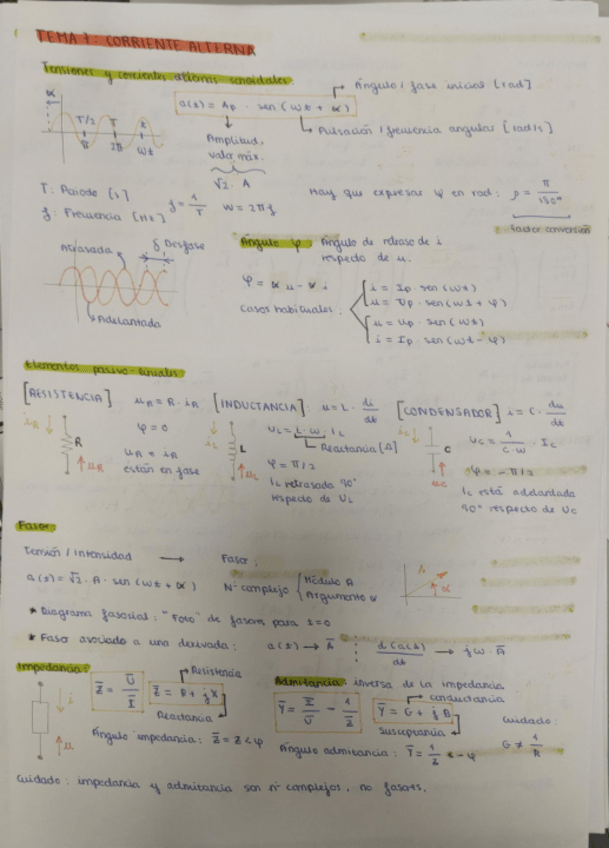 TEMA 7: CORRIENTE ALTERNA
Tensiones y corrientes alternas senoidales:
Ángulo / fase inicial [rad]
a(t) = Ap · sen (wt + α)
Pulsación / frecuencia angular [rad/s]
Amplitud,
valor máx.
√2 · A
α
T/2 T t
π 2π wt
T: Periodo [s]
f: Frecuencia [Hz]
f = 1/T w = 2πf
Hay que expresar φ en rad: ρ = π/180º
factor conversión
Atrasada
δ Desfase
Adelantada
Ángulo φ: Ángulo de retraso de i
respecto de u.
φ = αu - αi
Casos habituales:
i = Ip · sen (wt)
u = Up · sen (wt + φ)
u = Up · sen (wt)
i = Ip · sen (wt - φ)
Elementos pasivo-lineales
[RESISTENCIA] uR = R · iR
iR
R
uR
φ = 0
uR = iR
están en fase
[INDUCTANCIA] u = L · di/dt
iL
L
uL
UL = L · w · IL
Reactancia [Ω]
φ = π/2
IL retrasada 90º
respecto de UL
[CONDENSADOR] i = C · du/dt
iC
C
uC
UC = 1/C·w · IC
φ = - π/2
IC está adelantada
90º respecto de UC
Fasor:
Tensión / Intensidad → Fasor:
a(t) = √2 · A · sen (wt + α)
Nº complejo { Módulo A
Argumento α
A
α
* Diagrama fasorial: "Foto" de fasores para t=0
* Fasor asociado a una derivada: a(t) → A̅ d(a(t))/dt → jw · A̅
Impedancia:
i
u
Z̅ = U̅/I̅
Z̅ = R + jX
Resistencia
Reactancia
Ángulo impedancia: Z̅ = Z<φ
Admitancia: inversa de la impedancia
Y̅ = I̅/U̅ = 1/Z̅
Y̅ = G + jB
conductancia
Susceptancia
Ángulo admitancia: Y̅ = 1/Z < -φ
Cuidado:
G ≠ 1/R
Cuidado: impedancia y admitancia son nº complejos, no fasores.